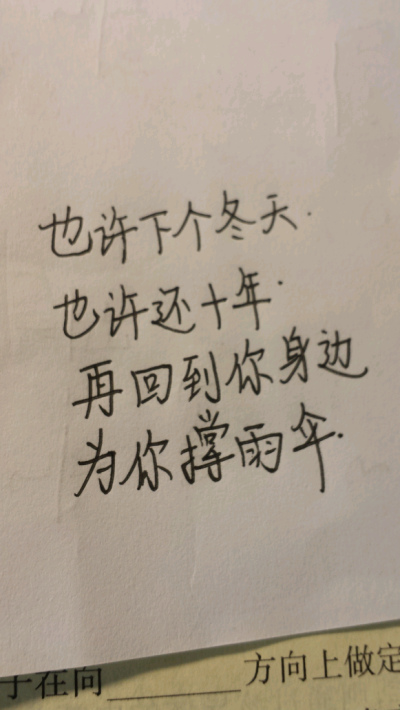 也许下个冬天.
也许还十年.
再回到你身边
为你撑雨伞.
于在向________方向上做定